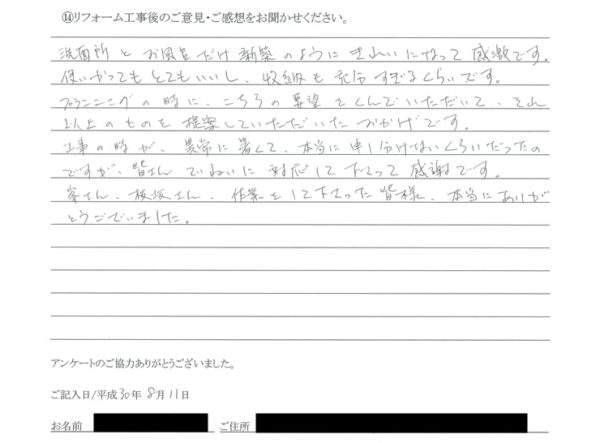 ⑭リフォーム工事後のご意見・ご感想をお聞かせください。
洗面所とお風呂だけ新築のようにきれいになって感激です。
使いかってもとてもいいし、収納も充分すぎるくらいです。
プランニングの時に、こちらの要望をくんでいただいて、それ
以上のものを提案していただいたおかげです。
工事の時が、異常に暑くて、本当に申し分けないくらいだったの
ですが、皆さんていねいに対応して下さって感謝です。
さん、板坂さん、作業をして下さった皆様、本当にありが
とうございました。
アンケートのご協力ありがとうございました。
ご記入日/平成30年8月11日
お名前 ご住所